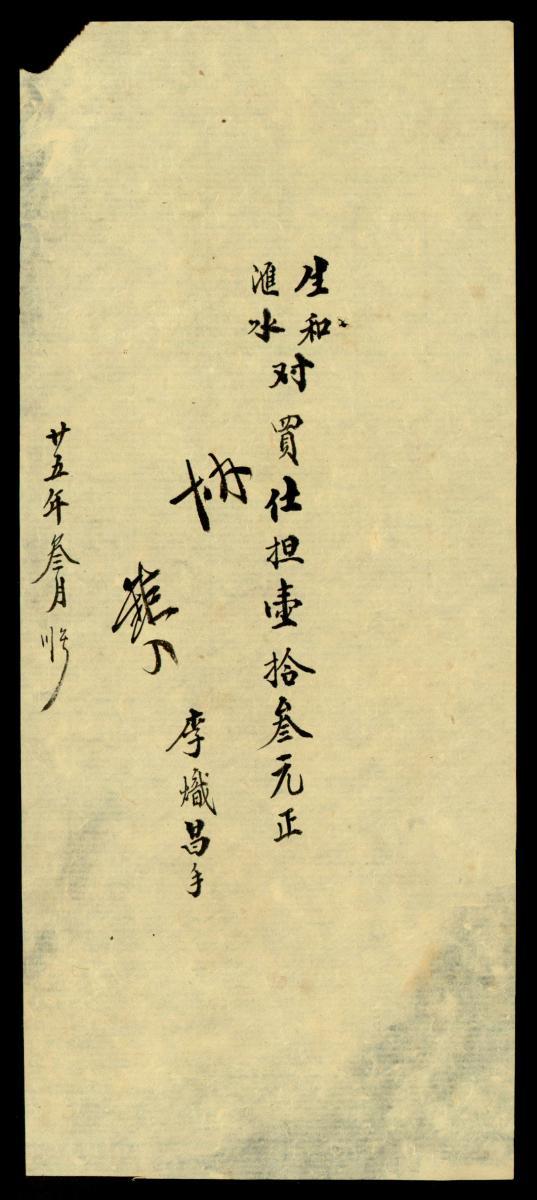 生和
滙水
对買仕担壹拾叁元正
李熾昌手
廿五年叁月